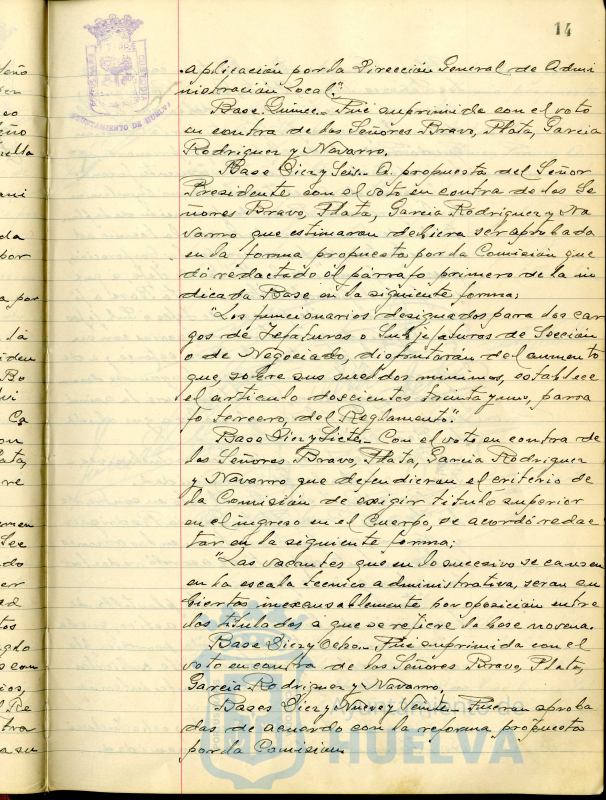 14
AYUNTAMIENTO DE HUELVA
aplicación por la Dirección General de Admi
nistración Local".
Base Quince.- Fué suprimida con el voto
en contra de los Señores Bravo, Plata, Garcia
Rodriguez y Navarro.
Base Diez y Seis.- A propuesta del Señor
Presidente con el voto en contra de los Se
ñores Bravo, Plata, Garcia Rodriguez y Na
varro que estimaron debiera ser aprobada
en la forma propuesta por la Comisión que
dó redactado el párrafo primero de la in
dicada Base en la siguiente forma:
"Los funcionarios designados para los car
gos de Jefaturas o Subjefaturas de Sección
o de Negociado, disfrutaran del aumento
que, sobre sus sueldos minimos, establece
el articulo doscientos treinta y uno, parra
fo tercero, del Reglamento".
Base Diez y Siete.- Con el voto en contra de
los Señores Bravo, Plata, Garcia Rodriguez
y Navarro que defendieron el criterio de
la Comisión de exigir titulo superior
en el ingreso en el Cuerpo, se acordó redac
tar en la siguiente forma:
"Las vacantes que en lo sucesivo se causen
en la escala tecnico administrativa, seran cu
biertas inexcusablemente por oposición entre
los titulados a que se refiere la base novena.
Base Diez y Ocho.- Fué suprimida con el
voto en contra de los Señores Bravo, Plata,
Garcia Rodriguez y Navarro.
Bases Diez y Nueve y Veinte.- Fueron aproba
das de acuerdo con la reforma propuesta
por la Comision.
Ayuntamiento de
HUELVA